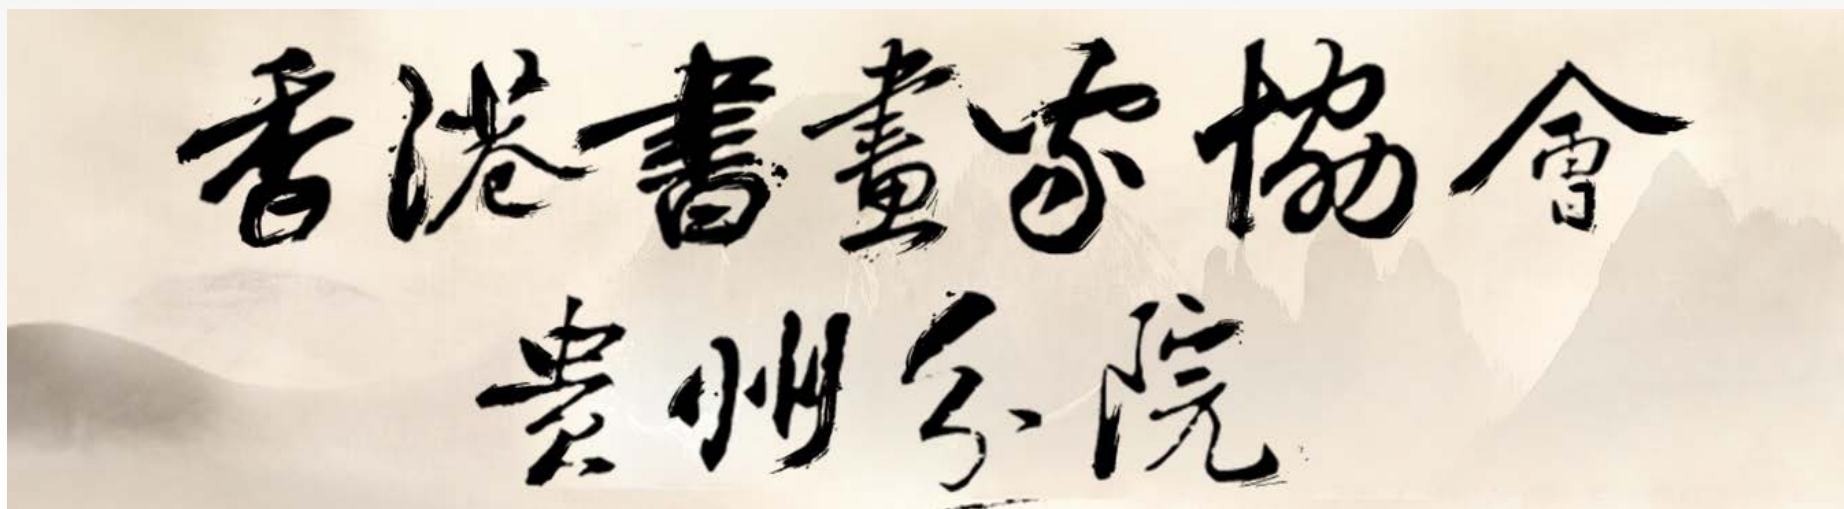 香港書畫家協會
贵州分院